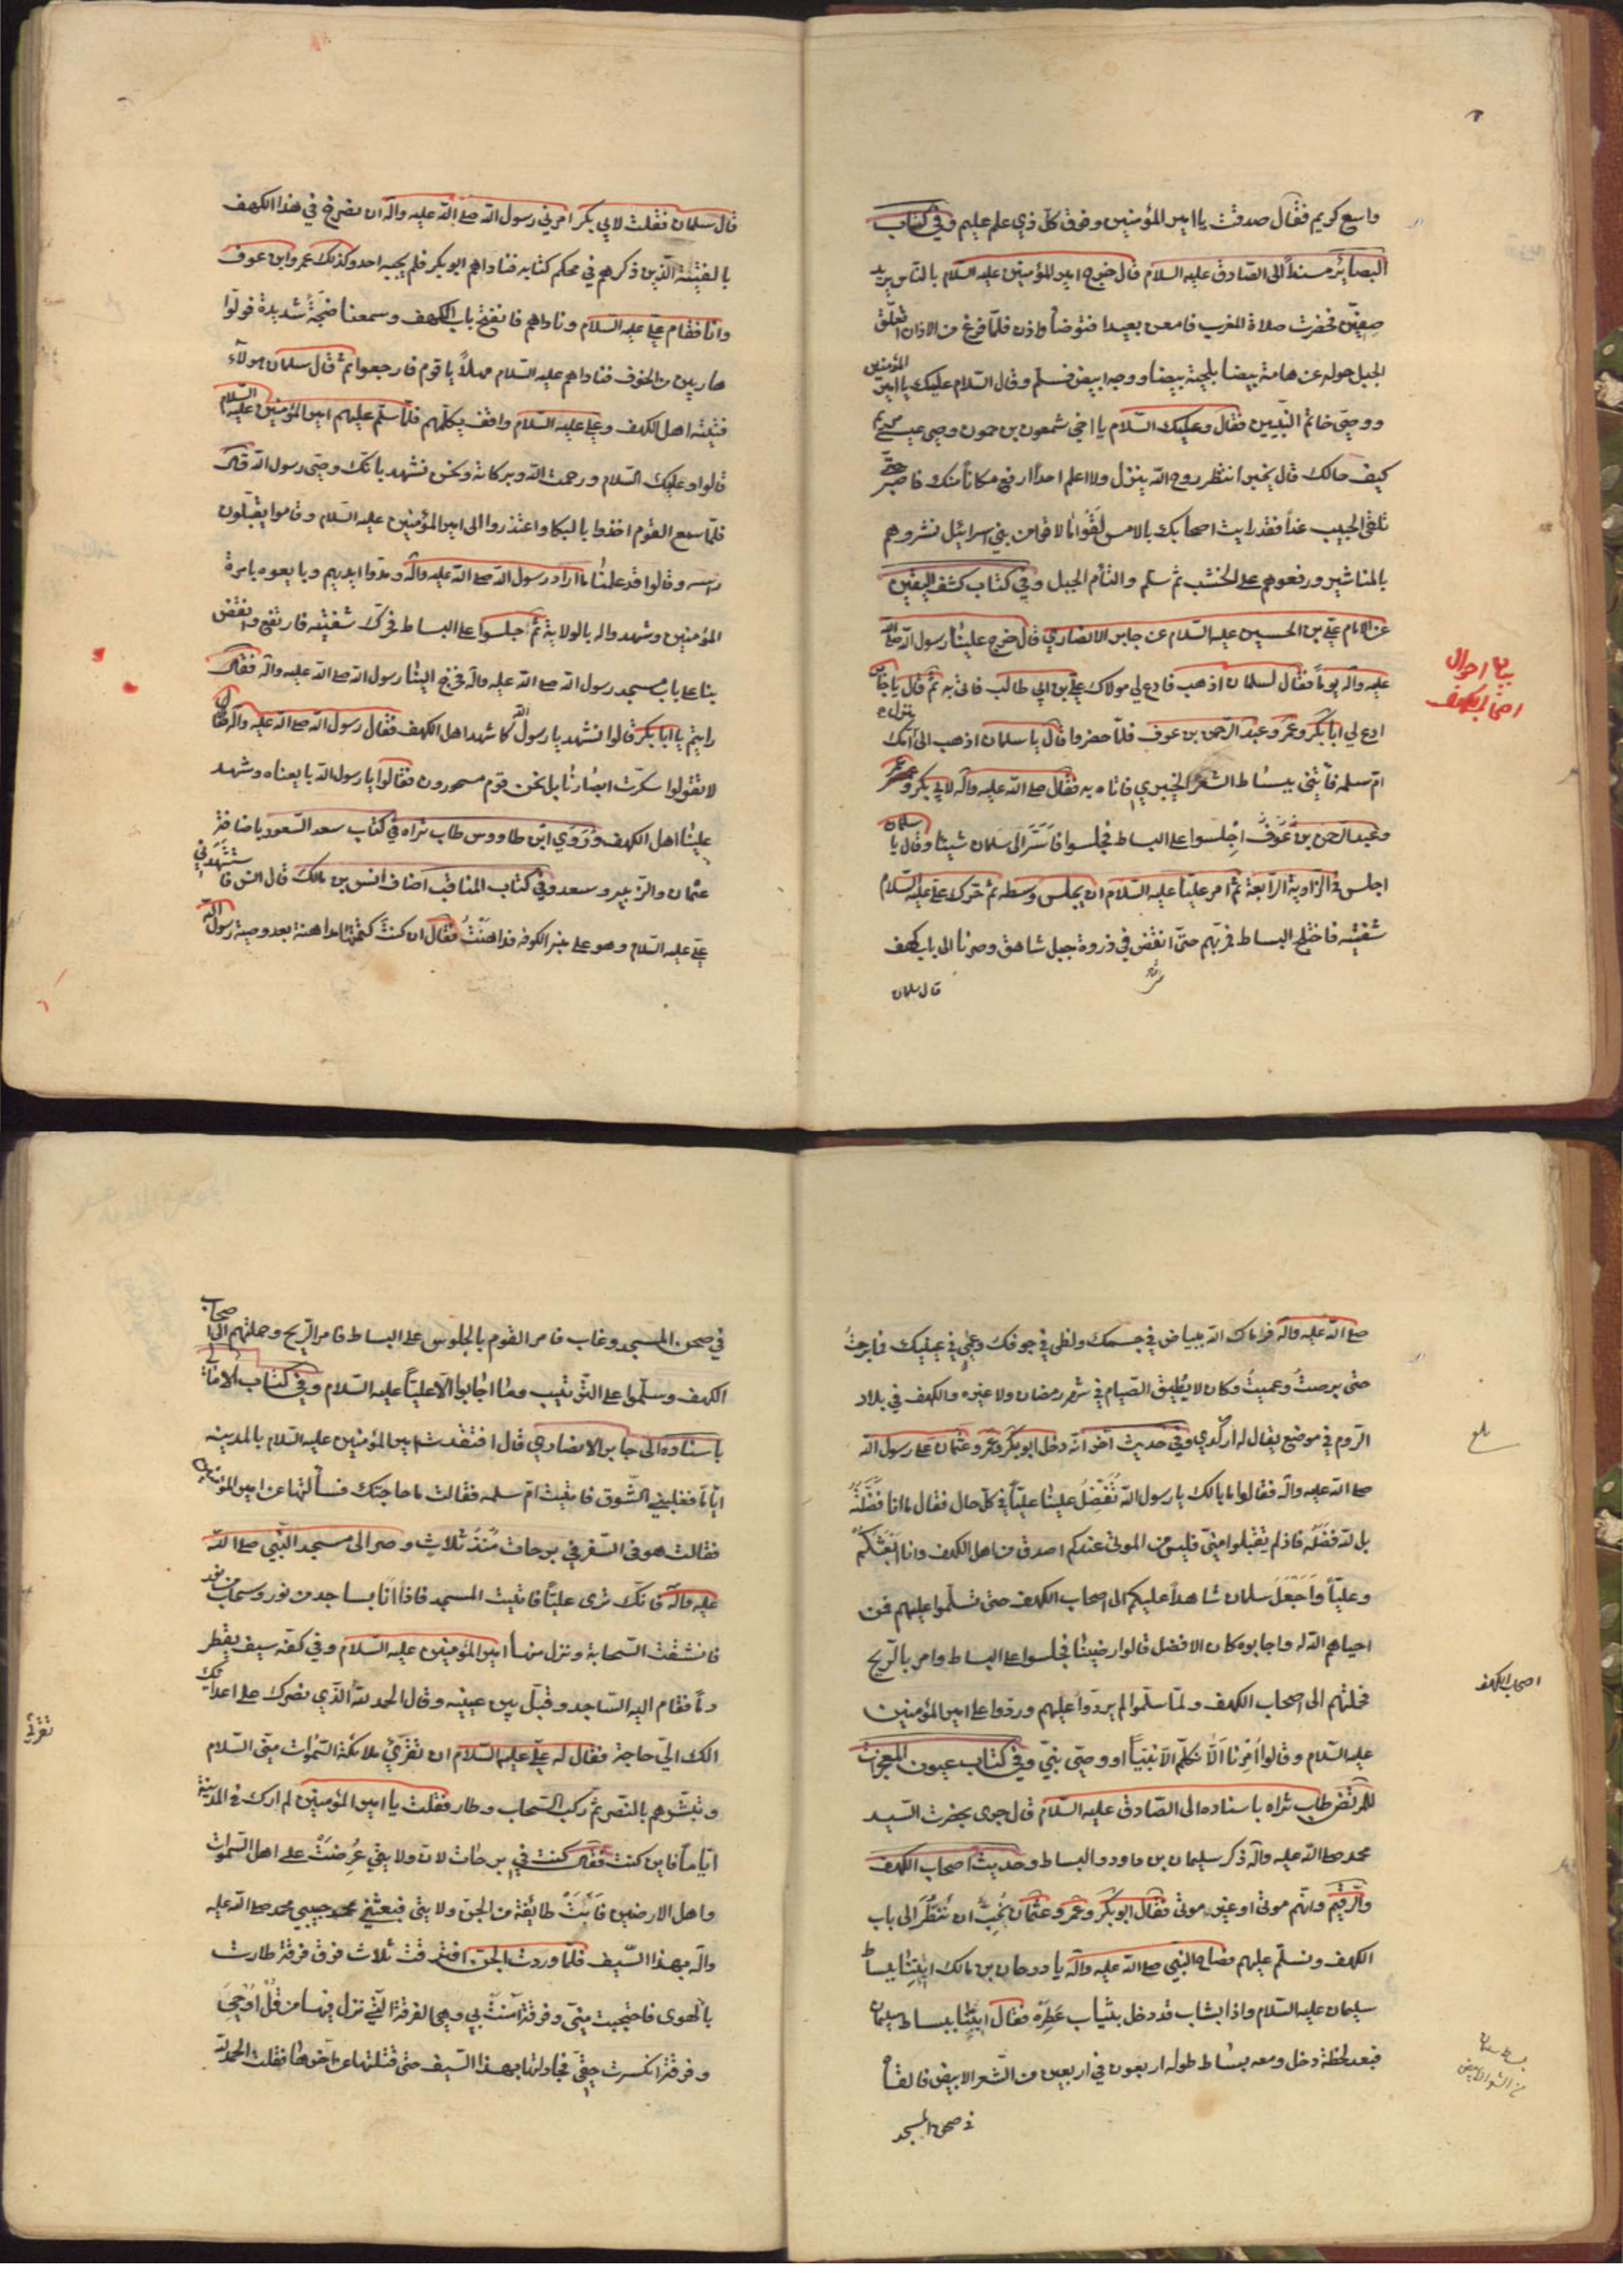 واسع كريم فقال صدقت يا امير المؤمنين وفوق كل ذي علم عليم وفي كتاب
البصائر مسنداً الى الصّادق عليه السلام قال خرج امير المؤمنين عليه السلام بالناس يريد
صفّين فحضرت صلاة المغرب فامعن بعيدا فتوضأ واذن فلمّا فرغ من الاذان انفلق
الجبل حوله عن هامة بيضا بلحية بيضا ووجه ابيض فسلّم وقال السّلام عليك يا امير المؤمنين
ووصيّ خاتم النّبيين فقال وعليك السّلام يا اخي شمعون بن حمون وصي عيسى بن مريم
كيف حالك قال بخير انتظر روح الله ينزل ولا اعلم احداً ارفع مكاناً منك فاصبر حتّى
تلقى الحبيب غداً فقد رايت اصحابك بالامس لَقُوا ما لاقوا من بني اسرائيل نشروهم
بالمناشير ورفعوهم على الخشب ثم سلّم والتأم الجبل وفي كتاب كشف اليقين
عن الامام علي بن الحسين عليه السّلام عن جابر الانصاري قال خرج علينا رسول الله صلى الله
عليه وآله يوماً فقال لسلمان اذهب فادع لي مولاك علي بن ابي طالب فاتى به ثم قال يا جابر
ادع لي ابا بكر وعمر وعبد الرّحمن بن عوف فلمّا حضروا قال يا سلمان اذهب الى منزل امّك
امّ سلمه فأتني ببساط الشعر الخيبري فاتاه به فقال صلى الله عليه وآله لابي بكر وعمر
وعبد الرحمن بن عوف اجلسوا على البساط فجلسوا فأسَرّ الى سلمان شيئا وقال يا سلمان
اجلس في الزاوية الرّابعة ثم امر عليّا عليه السّلام ان يجلس وسطه ثم حرك علي عليه السّلام
شفتيه فاختلج البساط فمر بهم حتّى انقض في ذروة جبل شاهق وصرنا الى باب كهف
قال سلمان
بيان احوال
اصحاب الكهف
قال سلمان فقلت لابي بكر امرني رسول الله صلى الله عليه وآله ان نصرخ في هذا الكهف
بالفتية الّذين ذكرهم في محكم كتابه فناداهم ابو بكر فلم يجبه احد وكذلك عمر وابن عوف
وانا فقام علي عليه السّلام وناداهم فانفتح باب الكهف وسمعنا ضجّة شديدة فولّوا
هاربين من الخوف فناداهم عليه السّلام مهلاً يا قوم فارجعوا ثم قال سلمان هولآء
فتيته اهل الكهف وعلي عليه السّلام واقف يكلّمهم فلمّا سلّم عليهم امير المؤمنين عليه السلام
قالوا وعليك السّلام ورحمة الله وبركاته ونحن نشهد بانّك وصيّ رسول الله قال
فلمّا سمع القوم اخذوا بالبكا واعتذروا الى امير المؤمنين عليه السّلام وقاموا يقبّلون
راسه وقالوا قد علمنا ما اراد رسول الله صلى الله عليه وآله ومدّوا ايديهم وبايعوه بامرة
المؤمنين وشهدوا له بالولاية ثم اجلسوا على البساط فحرّك شفتيه فارتفع وانقض
بنا على باب مسجد رسول الله صلى الله عليه وآله فخرج الينا رسول الله صلى الله عليه وآله فقال
رايتم يا ابا بكر قالوا نشهد يا رسول الله كما شهد اهل الكهف فقال رسول الله صلى الله عليه وآله
لا تقولوا سكّرت ابصارنا بل نحن قوم مسحورون فقالوا يا رسول الله بايعناه وشهد
علينا اهل الكهف وروى ابن طاووس طاب ثراه في كتاب سعد السّعود باضافة
عثمان والزبير وسعد وفي كتاب المناقب اضاف انس بن مالك قال انس فاستشهدني
علي عليه السّلام وهو على منبر الكوفة فداهنت فقال ان كنت كتمتها مداهنة بعد وصية رسول الله
صلى الله عليه وآله فرماك الله ببياض في جسمك ولظى في جوفك وعمى في عينيك فما برحتُ
حتى برصتُ وعميتُ وكان لا يُطيق الصّيام في شهر رمضان ولا غيره والكهف في بلاد
الرّوم في موضع يقال له اركدي وفي حديث آخر انّه دخل ابو بكر وعمر وعثمان على رسول الله
صلى الله عليه وآله فقالوا ما بالك يا رسول الله تُفَضِّلُ علينا عليّاً في كلّ حال فقال ما انا فضّلته
بل الله فضّله فاذ لم يقبلوا منّي فليس من الموتى عندكم اصدق من اهل الكهف وانا ابعثكم
وعليّاً واجعل سلمان شاهداً عليكم الى اصحاب الكهف حتى تسلّموا عليهم فمن
احياهم الله له واجابوه كان الافضل قالوا رضينا فجلسوا على البساط وامر بالرّيح
فحملتهم الى اصحاب الكهف ولمّا سلّموا لم يردّوا عليهم وردّوا على امير المؤمنين
عليه السّلام وقالوا اُمرنا الّا نكلّم الا نبيّاً او وصيّ نبيّ وفي كتاب عيون المعجزات
للمرتضى طاب ثراه باسناده الى الصّادق عليه السّلام قال جرى بحضرت السّيد
محمد صلى الله عليه وآله ذكر سليمان بن داود والبساط وحديث اصحاب الكهف
والرّقيم وانّهم موتى او غير موتى فقال ابو بكر وعمر وعثمان نُحبّ ان ننظر الى باب
الكهف ونسلّم عليهم فصاح النّبي صلى الله عليه وآله يا دوحان بن مالك ايتنا ببساط
سليمان عليه السّلام واذا بشاب قد دخل بثياب عَطِرَه فقال ايتنا ببساط سليمان
فبعد لحظة دخل ومعه بساط طوله اربعون في اربعين من الشّعر الابيض فالقاه
في صحن المسجد
بلغ
اصحاب الكهف
بساط سليمان
من الشعر الابيض
في صحن المسجد وغاب فامر القوم بالجلوس على البساط فامر الرّيح وحملتهم الى اصحاب
الكهف وسلّموا على التّرتيب وما اجابوا الّا عليّاً عليه السّلام وفي كتاب الامامة
باسناده الى جابر الانصاري قال افتقدت امير المؤمنين عليه السّلام بالمدينه
ايّاماً فغلبني الشّوق فاتيت امّ سلمه فقالت ما حاجتك فسألتها عن امير المؤمنين
فقالت هو في السّفر في برحات مُنذ ثلاث وصر الى مسجد النّبي صلى الله
عليه وآله فانّك ترى عليّاً فاتيت المسجد فاذا انا بساجد من نور وسحاب من نور
فانشقت السّحابة ونزل منها امير المؤمنين عليه السّلام وفي كفّه سيف يقطر
دماً فقام اليه السّاجد وقبّل بين عينيه وقال الحمد لله الّذي نصرك على اعدائك
الك اليّ حاجة فقال له علي عليه السّلام ان تقرئ ملائكة السّموات منّي السّلام
وتبشّرهم بالنّصر ثم ركب السّحاب وطار فقلت يا امير المؤمنين لم ارك في المدينة
ايّاماً فاين كنت فقال كنت في برحات لان ولايتي عُرضت على اهل السّموات
واهل الارضين فَأَبَتْ طائفة من الجن ولايتي فبعثني حبيبي محمد صلى الله عليه
وآله بهذا السّيف فلمّا وردت الجن افترقت ثلاث فرق فرقة طارت
بالهوى فاحتجبت منّي وفرقة آمنت بي وهي الفرقة الّتي نزل فيها من قُلْ اُوحِيَ
وفرقة انكرت حقّي فجادلتها بهذا السّيف حتى قتلتها عن آخرها فقلت الحمد لله
تقرئ